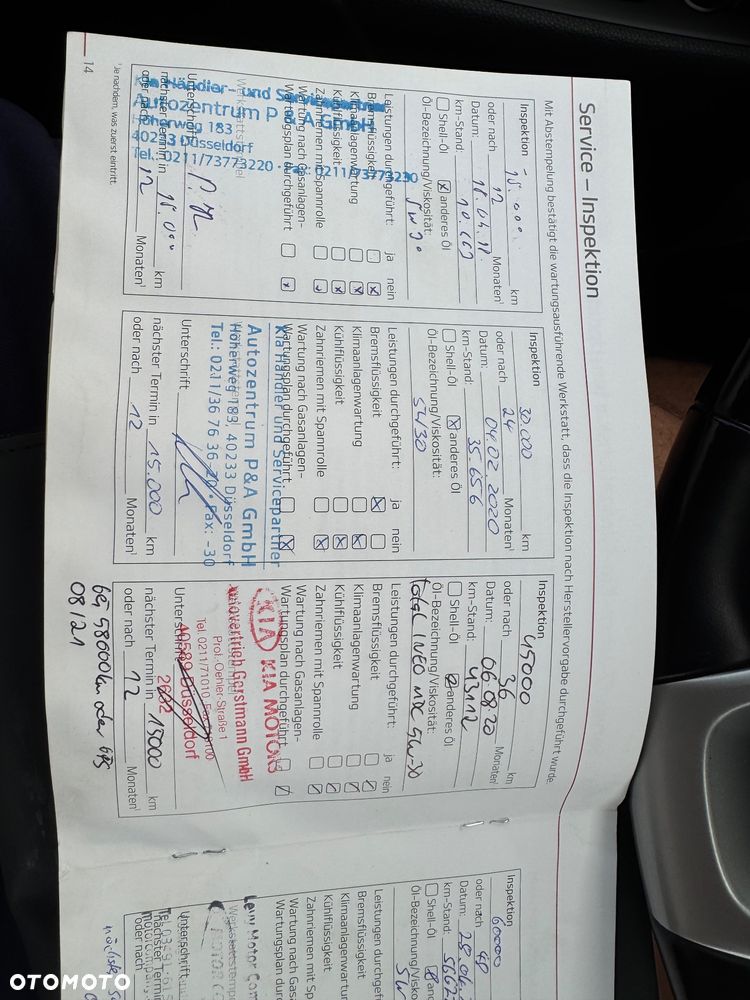 Service – Inspektion
Mit Abstempelung bestätigt die wartungsausführende Werkstatt, dass die Inspektion nach Herstellervorgabe durchgeführt wurde.
Inspektion 15.000 km
oder nach 12 Monaten¹
Datum:
km-Stand:
Shell-Öl anderes Öl
Öl-Bezeichnung/Viskosität:
5W30
Leistungen durchgeführt: ja nein
Bremsflüssigkeit
Klimaanlagenwartung
Kühlflüssigkeit
Zahnriemen mit Spannrolle
Wartung nach Gasanlagen-
Wartungsplan durchgeführt
Kia Händler- und
Autozentrum P & A GmbH
Höherweg 183
40233 Düsseldorf
Tel.: 0211/73773220 · Fax: 0211/73773230
Unterschrift
nächster Termin in 15.000 km
oder nach 12 Monaten¹
¹Je nachdem, was zuerst eintritt.
14
Inspektion 30.000 km
oder nach 24 Monaten¹
Datum: 04.02.2020
km-Stand: 35.656
Shell-Öl anderes Öl
Öl-Bezeichnung/Viskosität:
5W30
Leistungen durchgeführt: ja nein
Bremsflüssigkeit
Klimaanlagenwartung
Kühlflüssigkeit
Zahnriemen mit Spannrolle
Wartung nach Gasanlagen-
Wartungsplan durchgeführt
Kia Händler und Servicepartner
Autozentrum P&A GmbH
Höherweg 183, 40233 Düsseldorf
Tel.: 0211/36 76 36 Fax: -30
Unterschrift
nächster Termin in 15.000 km
oder nach 12 Monaten¹
Inspektion 45000 km
oder nach 36 Monaten¹
Datum: 06.08.20
km-Stand: 43112
Shell-Öl anderes Öl
Öl-Bezeichnung/Viskosität:
Total INEO MDC 5W-30
Leistungen durchgeführt: ja nein
Bremsflüssigkeit
Klimaanlagenwartung
Kühlflüssigkeit
Zahnriemen mit Spannrolle
Wartung nach Gasanlagen-
Wartungsplan durchgeführt
KIA KIA MOTORS
Autovertrieb Gerstmann GmbH
Prof.-Oehler-Straße 1
Tel. 0211/71010
40589 Düsseldorf
nächster Termin in 15000 km
oder nach 12 Monaten¹
bei 58000km oder
08/21
Inspektion 60000
oder nach
Datum:
km-Stand:
Shell-Öl
Öl-Bezeichnung/Vis
5W
Leistungen durchgefü
Bremsflüssigkeit
Klimaanlagenwartung
Kühlflüssigkeit
Zahnriemen mit Spann
Wartung nach Gasanla
Wartungsplan durchge
Motor Com
Unterschrift
nächster Termin
oder nach
OTOMOTO